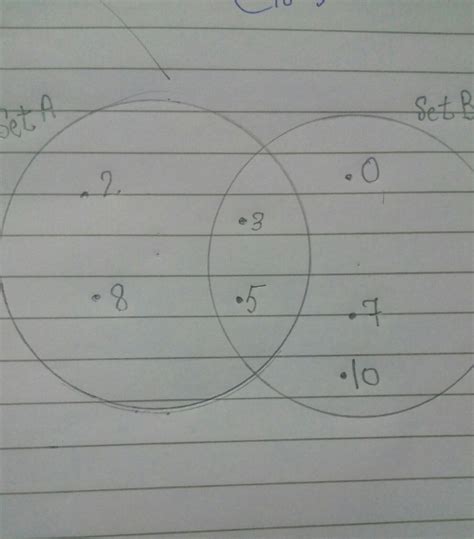 Set A
Set B
.2.
•0
•3
•8
•5
•7
•10